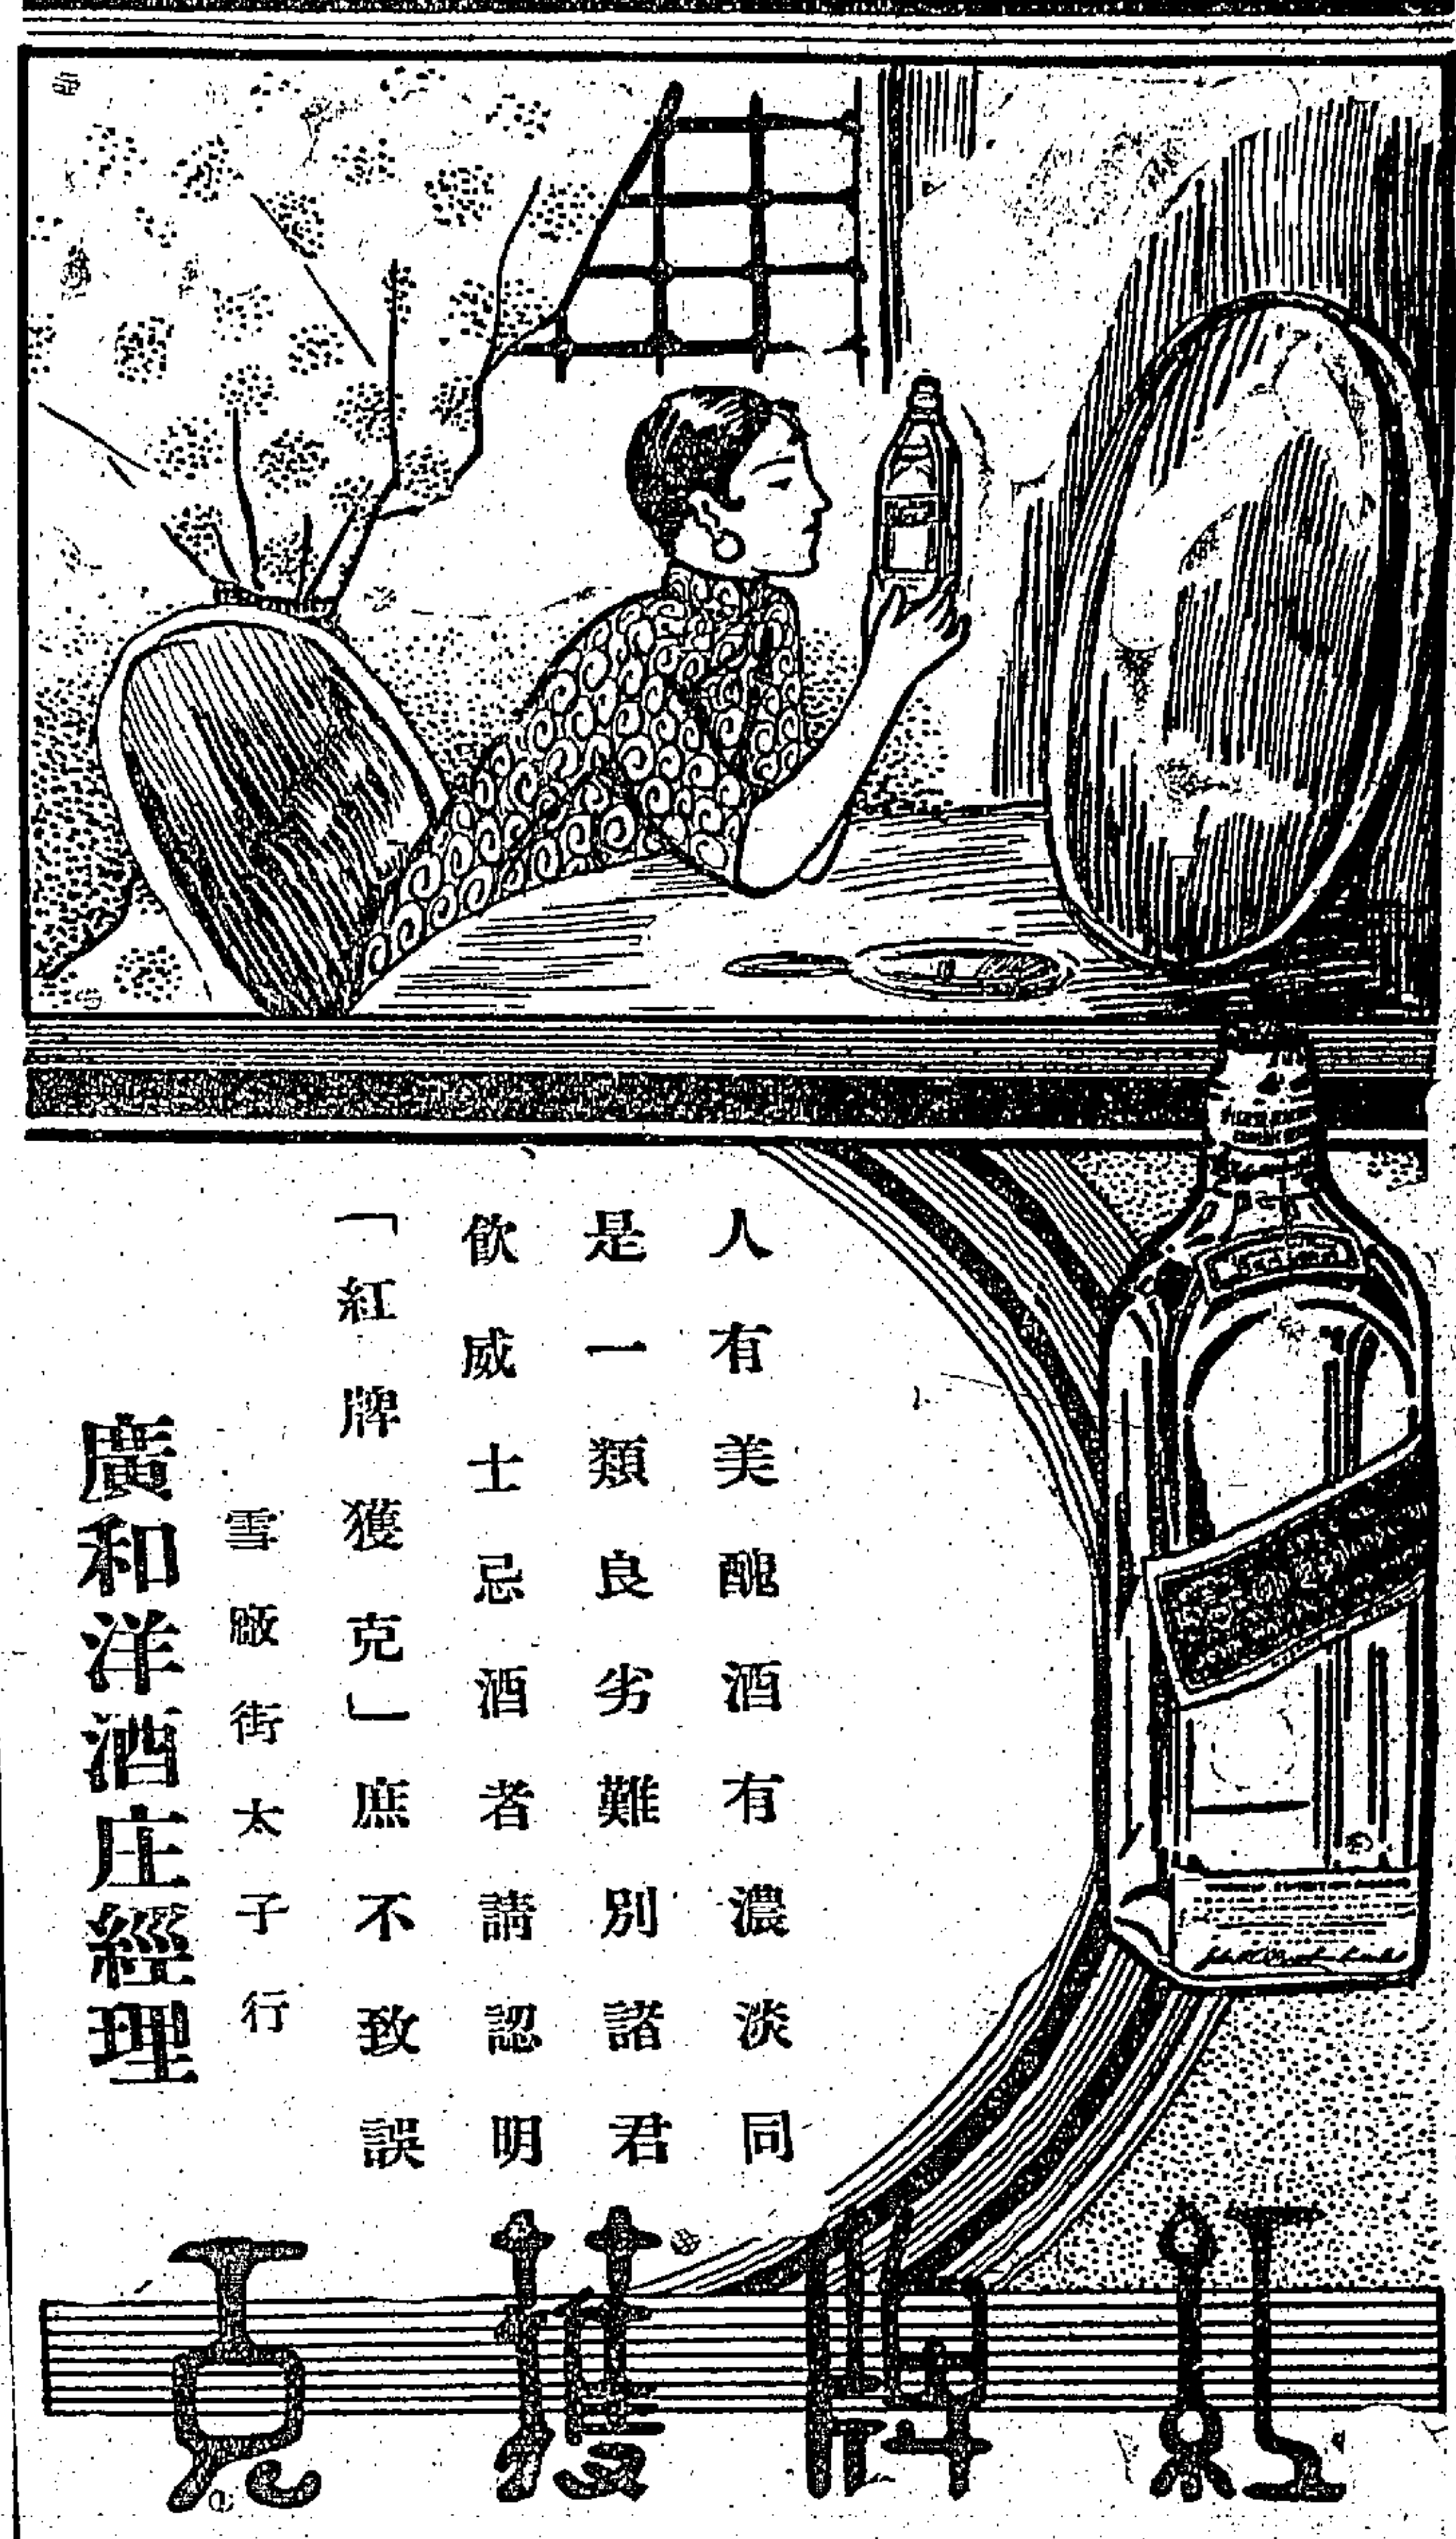 人有美醜酒有濃淡同
是一類良劣難別諸君
飲威士忌酒者請認明
「紅牌獲克」庶不致誤
雪廠街太子行
廣和洋酒庄經理
紅牌獲克